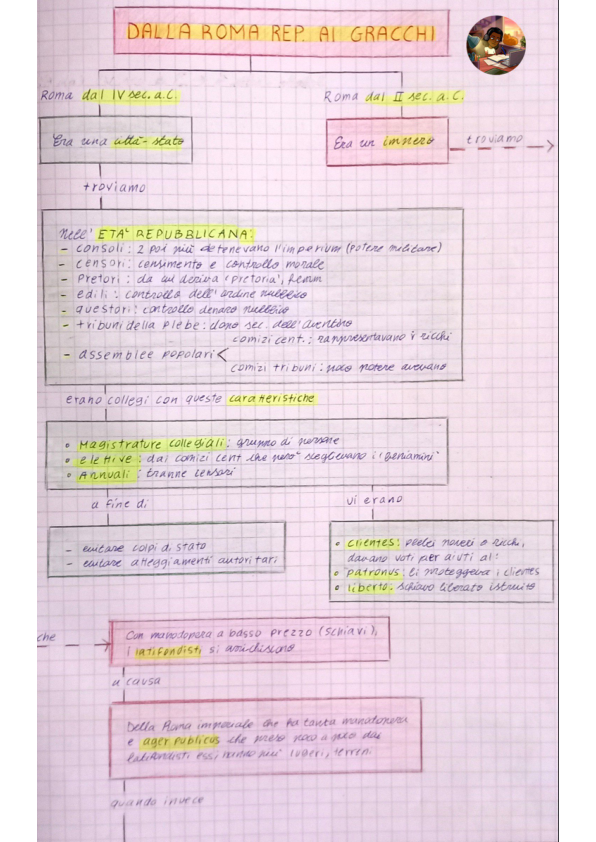 DALLA ROMA REP. AI GRACCHI
Roma dal IV sec. a.C.
Roma dal II sec. a.C.
Era una città-stato
Era un impero
troviamo
troviamo
nell' ETA' REPUBBLICANA:
- consoli: 2 poi più detenevano l'imperium (potere militare)
- censori: censimento e controllo morale
- Pretori: da cui deriva 'pretoria',
- edili: controllo dell'ordine pubblico
- questori: controllo denaro pubblico
- tribuni della plebe: dopo sec. dell'aventino
comizi cent.: rappresentavano i ricchi
- assemblee popolari <
comizi tribuni: poco potere avevano
erano collegi con queste caratteristiche
• Magistrature collegiali: gruppo di persone
• elettive: dai comizi cent. che però sceglievano i 'beniamini'
• Annuali: tranne censori
a fine di
vi erano
- evitare colpi di stato
- evitare atteggiamenti autoritari
• clientes: plebei poveri o ricchi,
davano voti per aiuti al:
• patronus: li proteggeva i clientes
• liberto: schiavo liberato istruito
che
Con manodopera a basso prezzo (schiavi),
i latifondisti si arricchiscono
a causa
Della Roma imperiale che ha tanta manodopera
e ager publicus che preso poco a poco dai
latifondisti essi hanno più iugeri, terreni.
quando invece